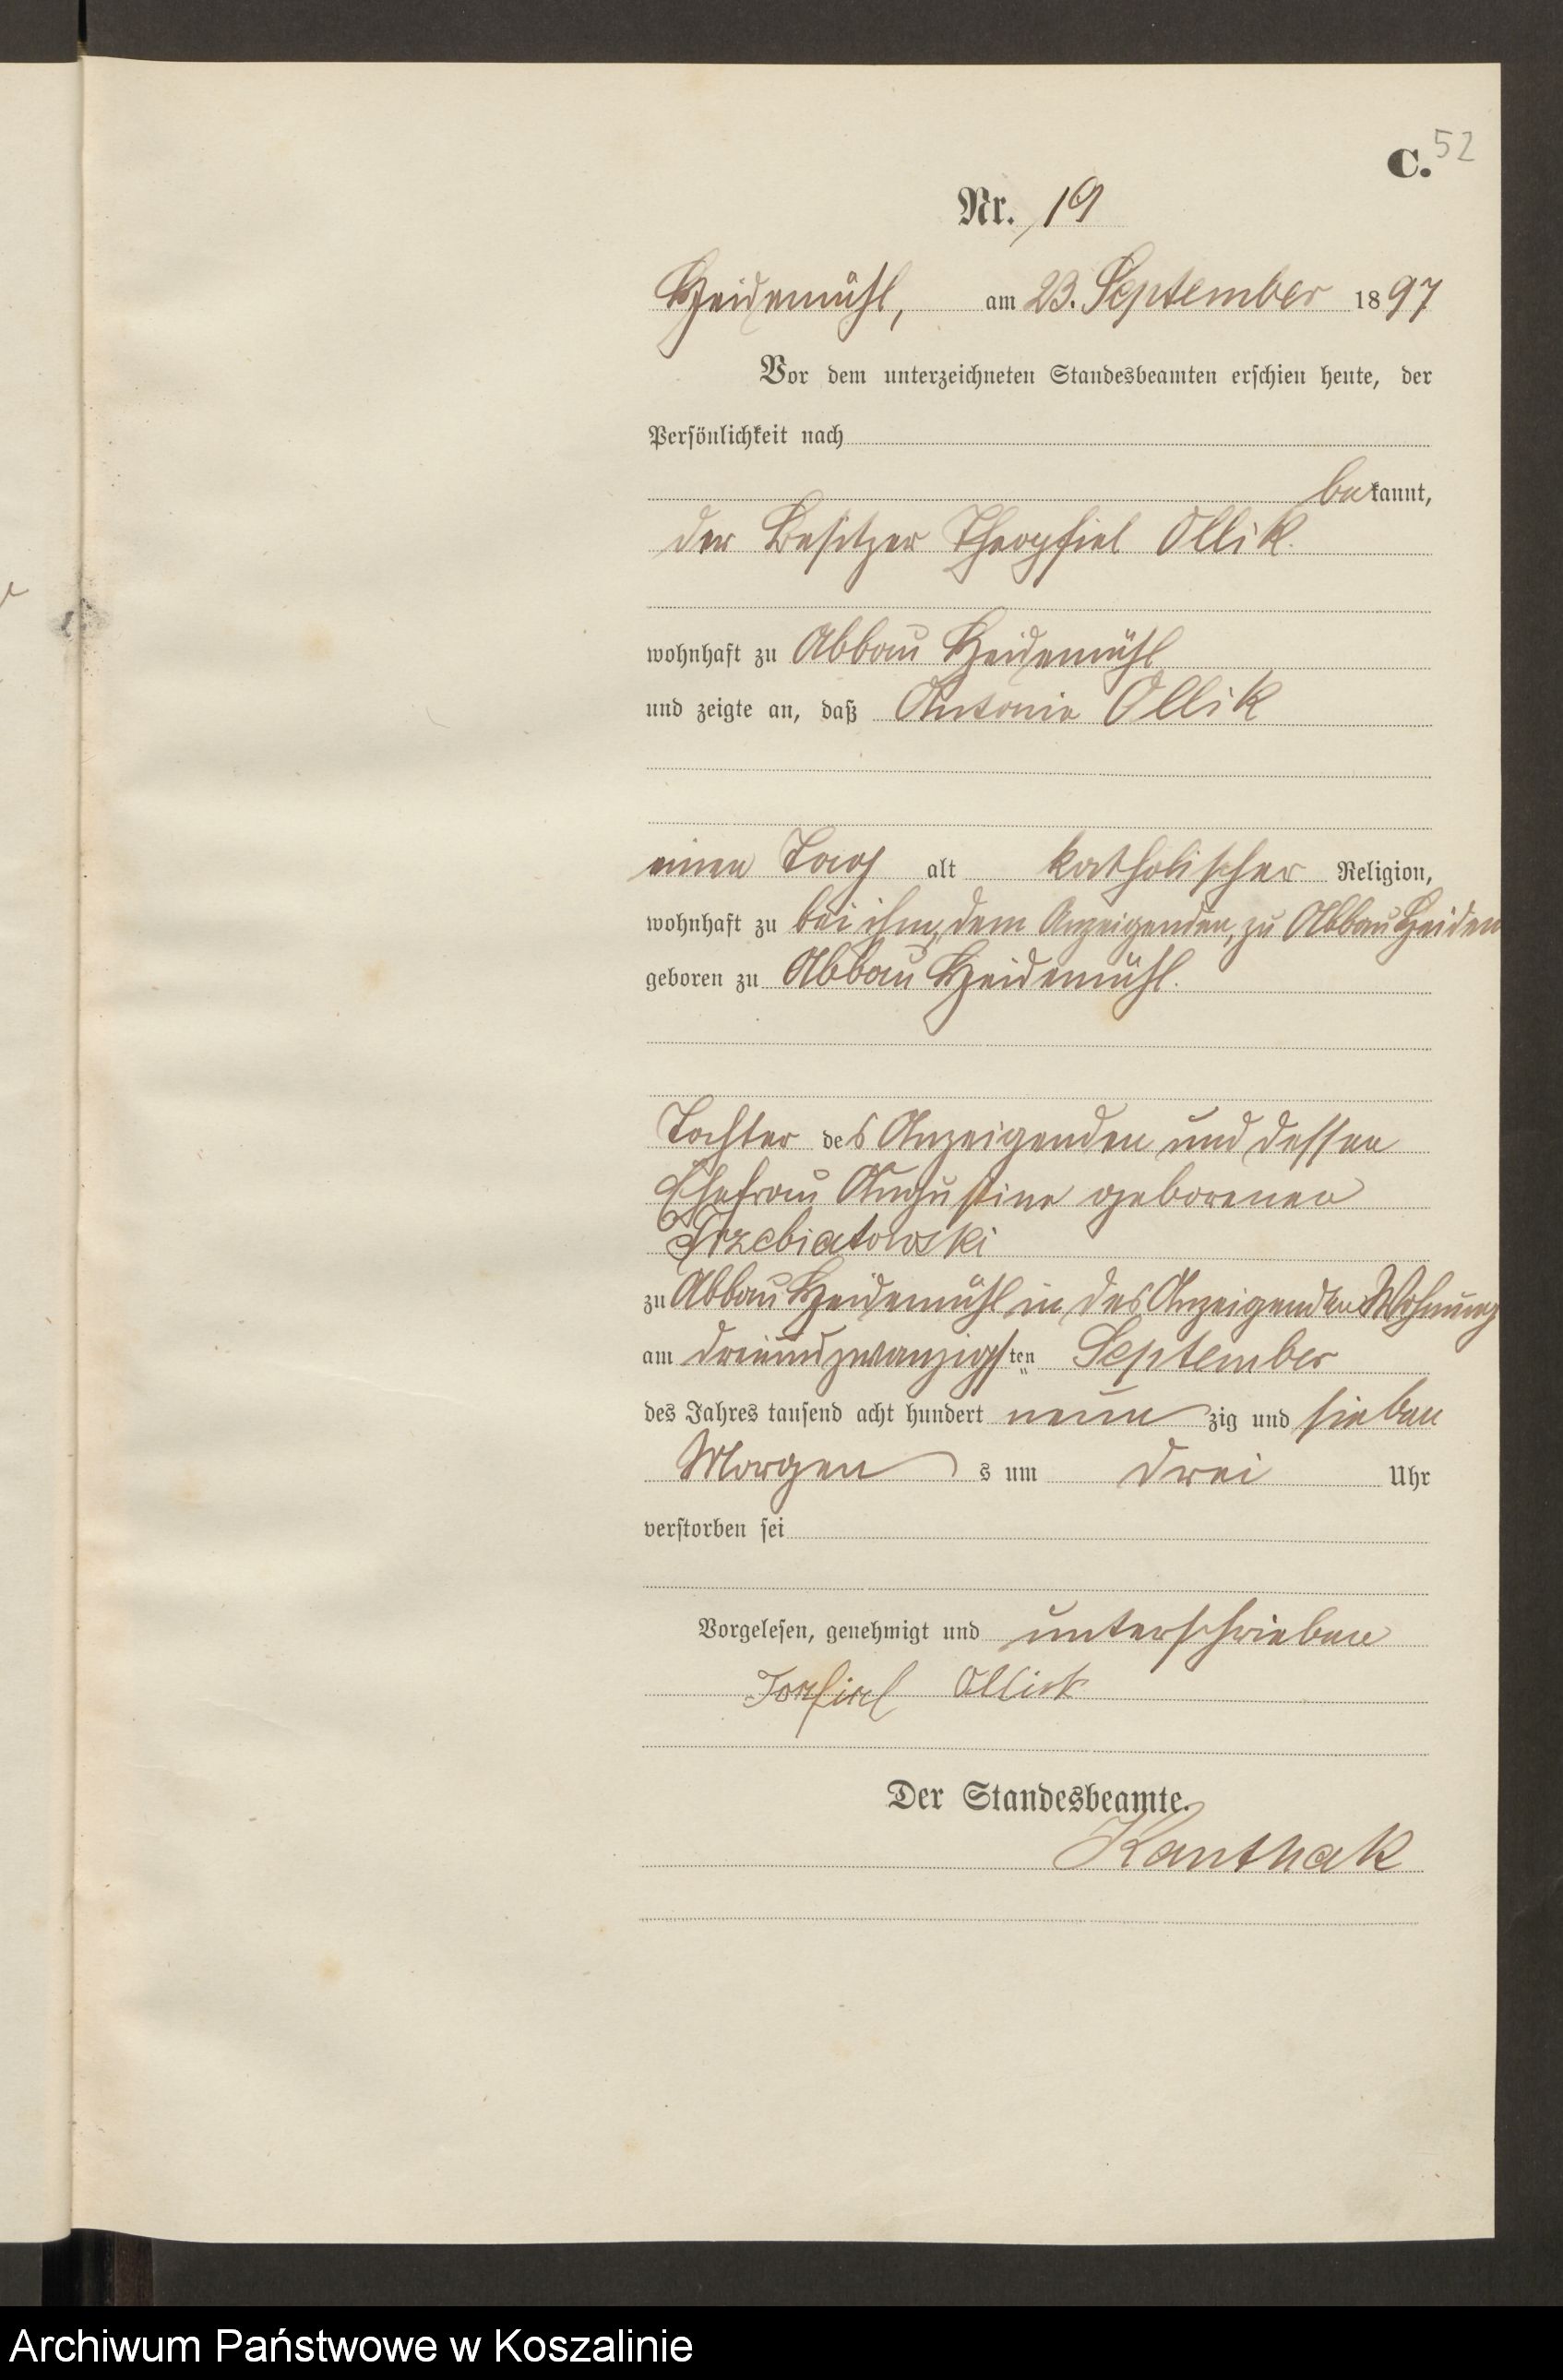 C. 52
Nr. 19
Heidemühl, am 23. September 1897
Vor dem unterzeichneten Standesbeamten erschien heute, der
Persönlichkeit nach
bekannt,
der Besitzer Theophiel Ollik.
wohnhaft zu Abbau Heidemühl
und zeigte an, daß Antonie Ollik
einen Tag alt katholischer Religion,
wohnhaft zu bei ihm, dem Anzeigenden, zu Abbau Heidem
geboren zu Abbau Heidemühl.
Tochter des Anzeigenden und dessen
Ehefrau Augustine geborenen
Trzebiatowski
zu Abbau Heidemühl in des Anzeigenden Wohnung
am dreiundzwanzigsten September
des Jahres tausend acht hundert neunzig und sieben
Morgens um drei Uhr
verstorben sei
Vorgelesen, genehmigt und unterschrieben
Ollik
Der Standesbeamte.
Kanthak
Archiwum Państwowe w Koszalinie